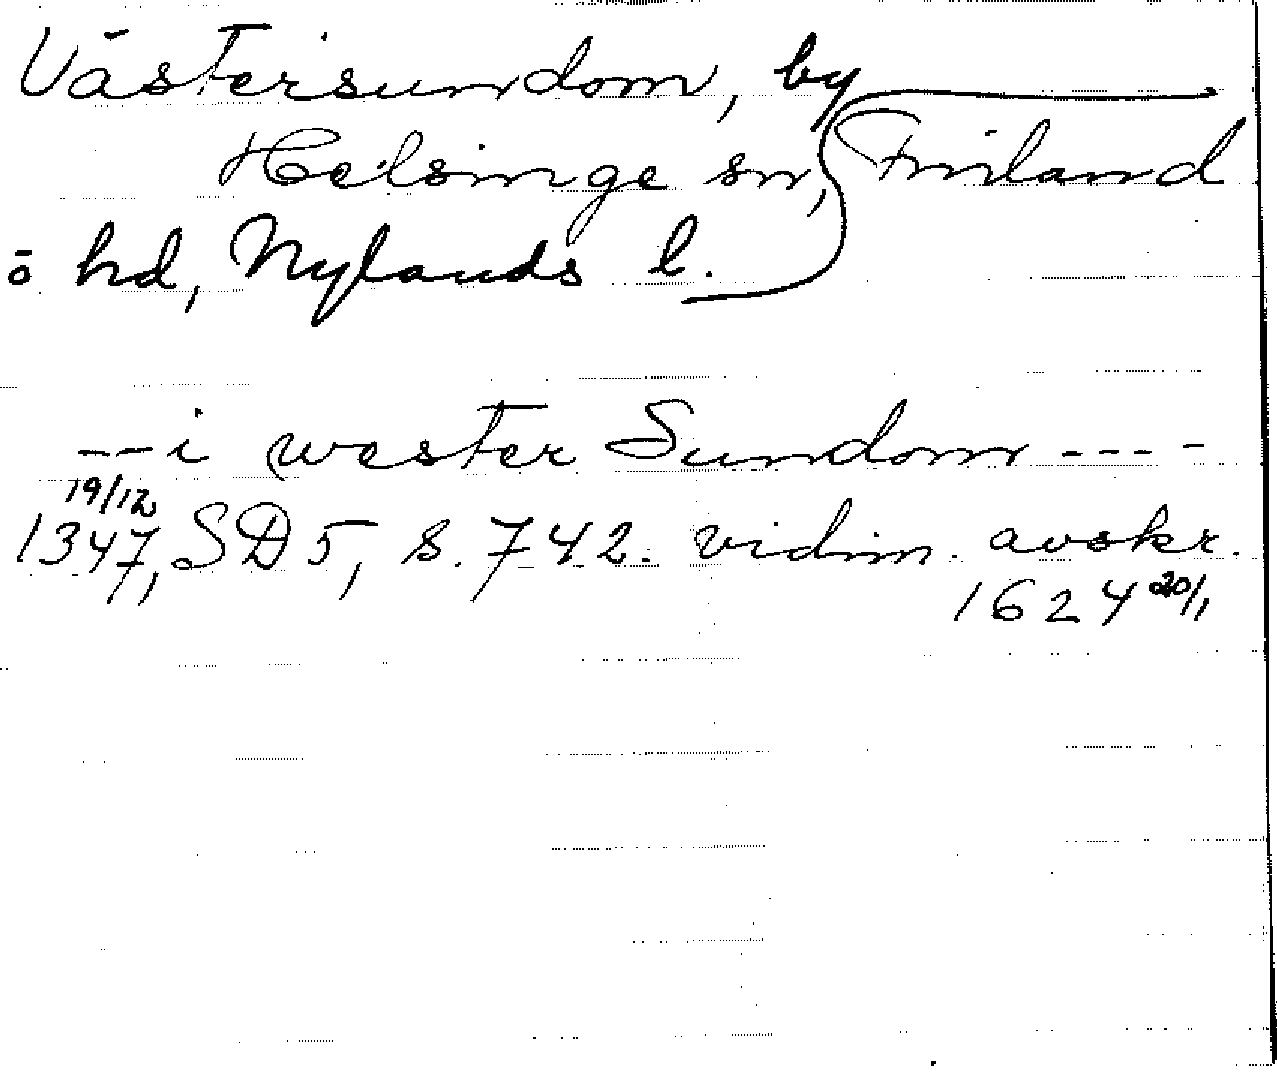 Västersundom, by
Helsinge sn, Finland
ö hd, Nylands l.
--i wester Sundom----
19/12
1347, SD 5, s. 742. vidim. avskr.
1624 20/1